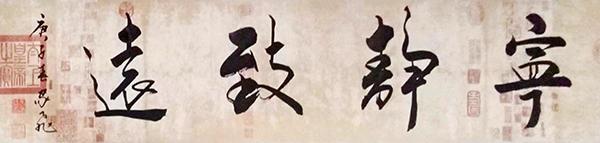 寧靜致遠
庚子春